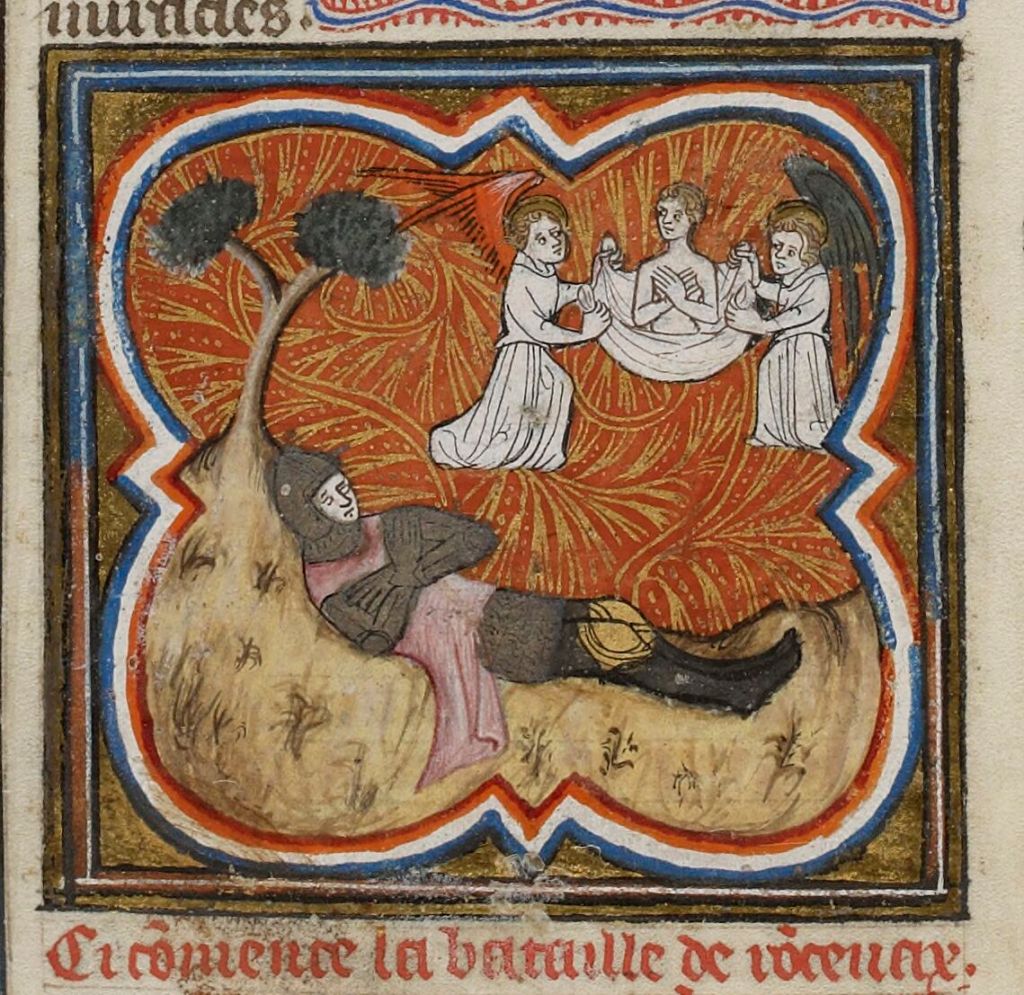 miracles.
Ci cõmence la bataille de rõceuax.